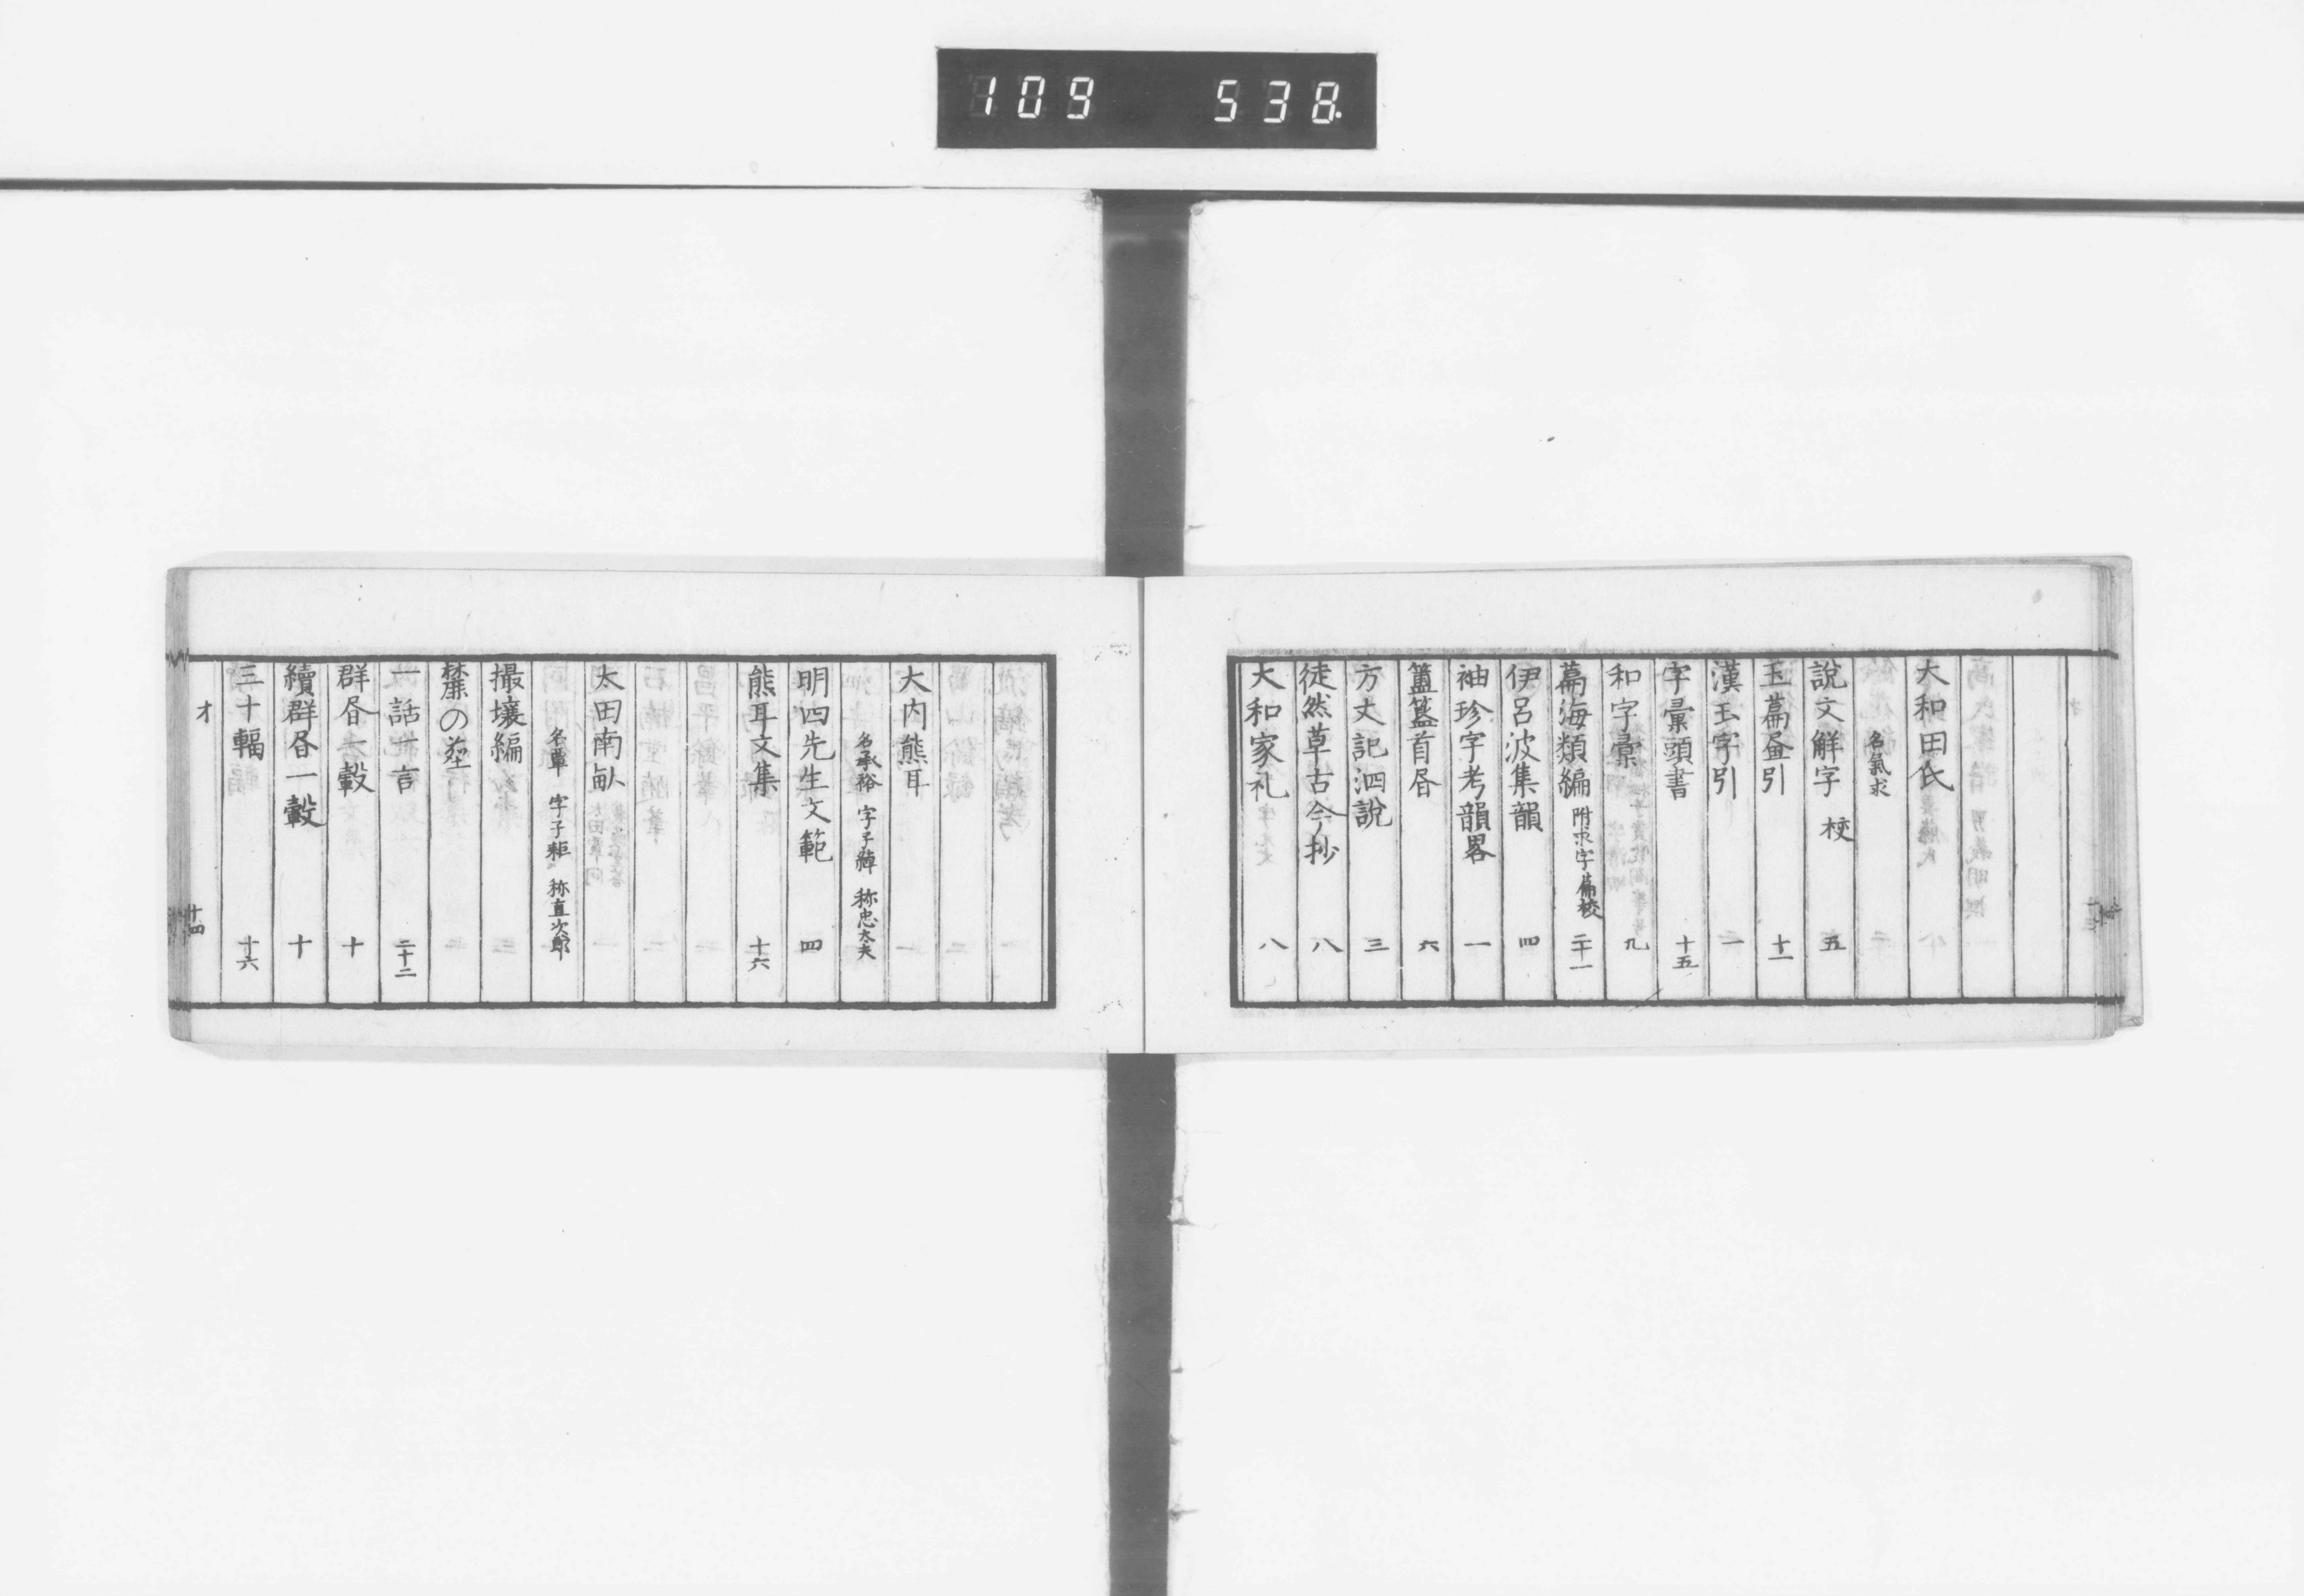 109 538.
大和田氏
名氣求
説文解字 校 五
玉篇畳引 十一
漢玉字引 一
字彙頭書 十五
和字彙 九
篇海類編 附求字篇校 二十一
伊呂波集韻 四
袖珍字考韻畧 一
簠簋首昏 六
方丈記泗説 三
徒然草古今抄 八
大和家礼 八
大内熊耳
名承裕 字子綽 称忠太夫
明四先生文範 四
熊耳文集 十六
太田南畝
名覃 字子耜 称直次郎
撮壌編
麓の塵
一話一言 二十二
群昏一轂 十
續群昏一轂 十
三十輻 十六
オ 十四